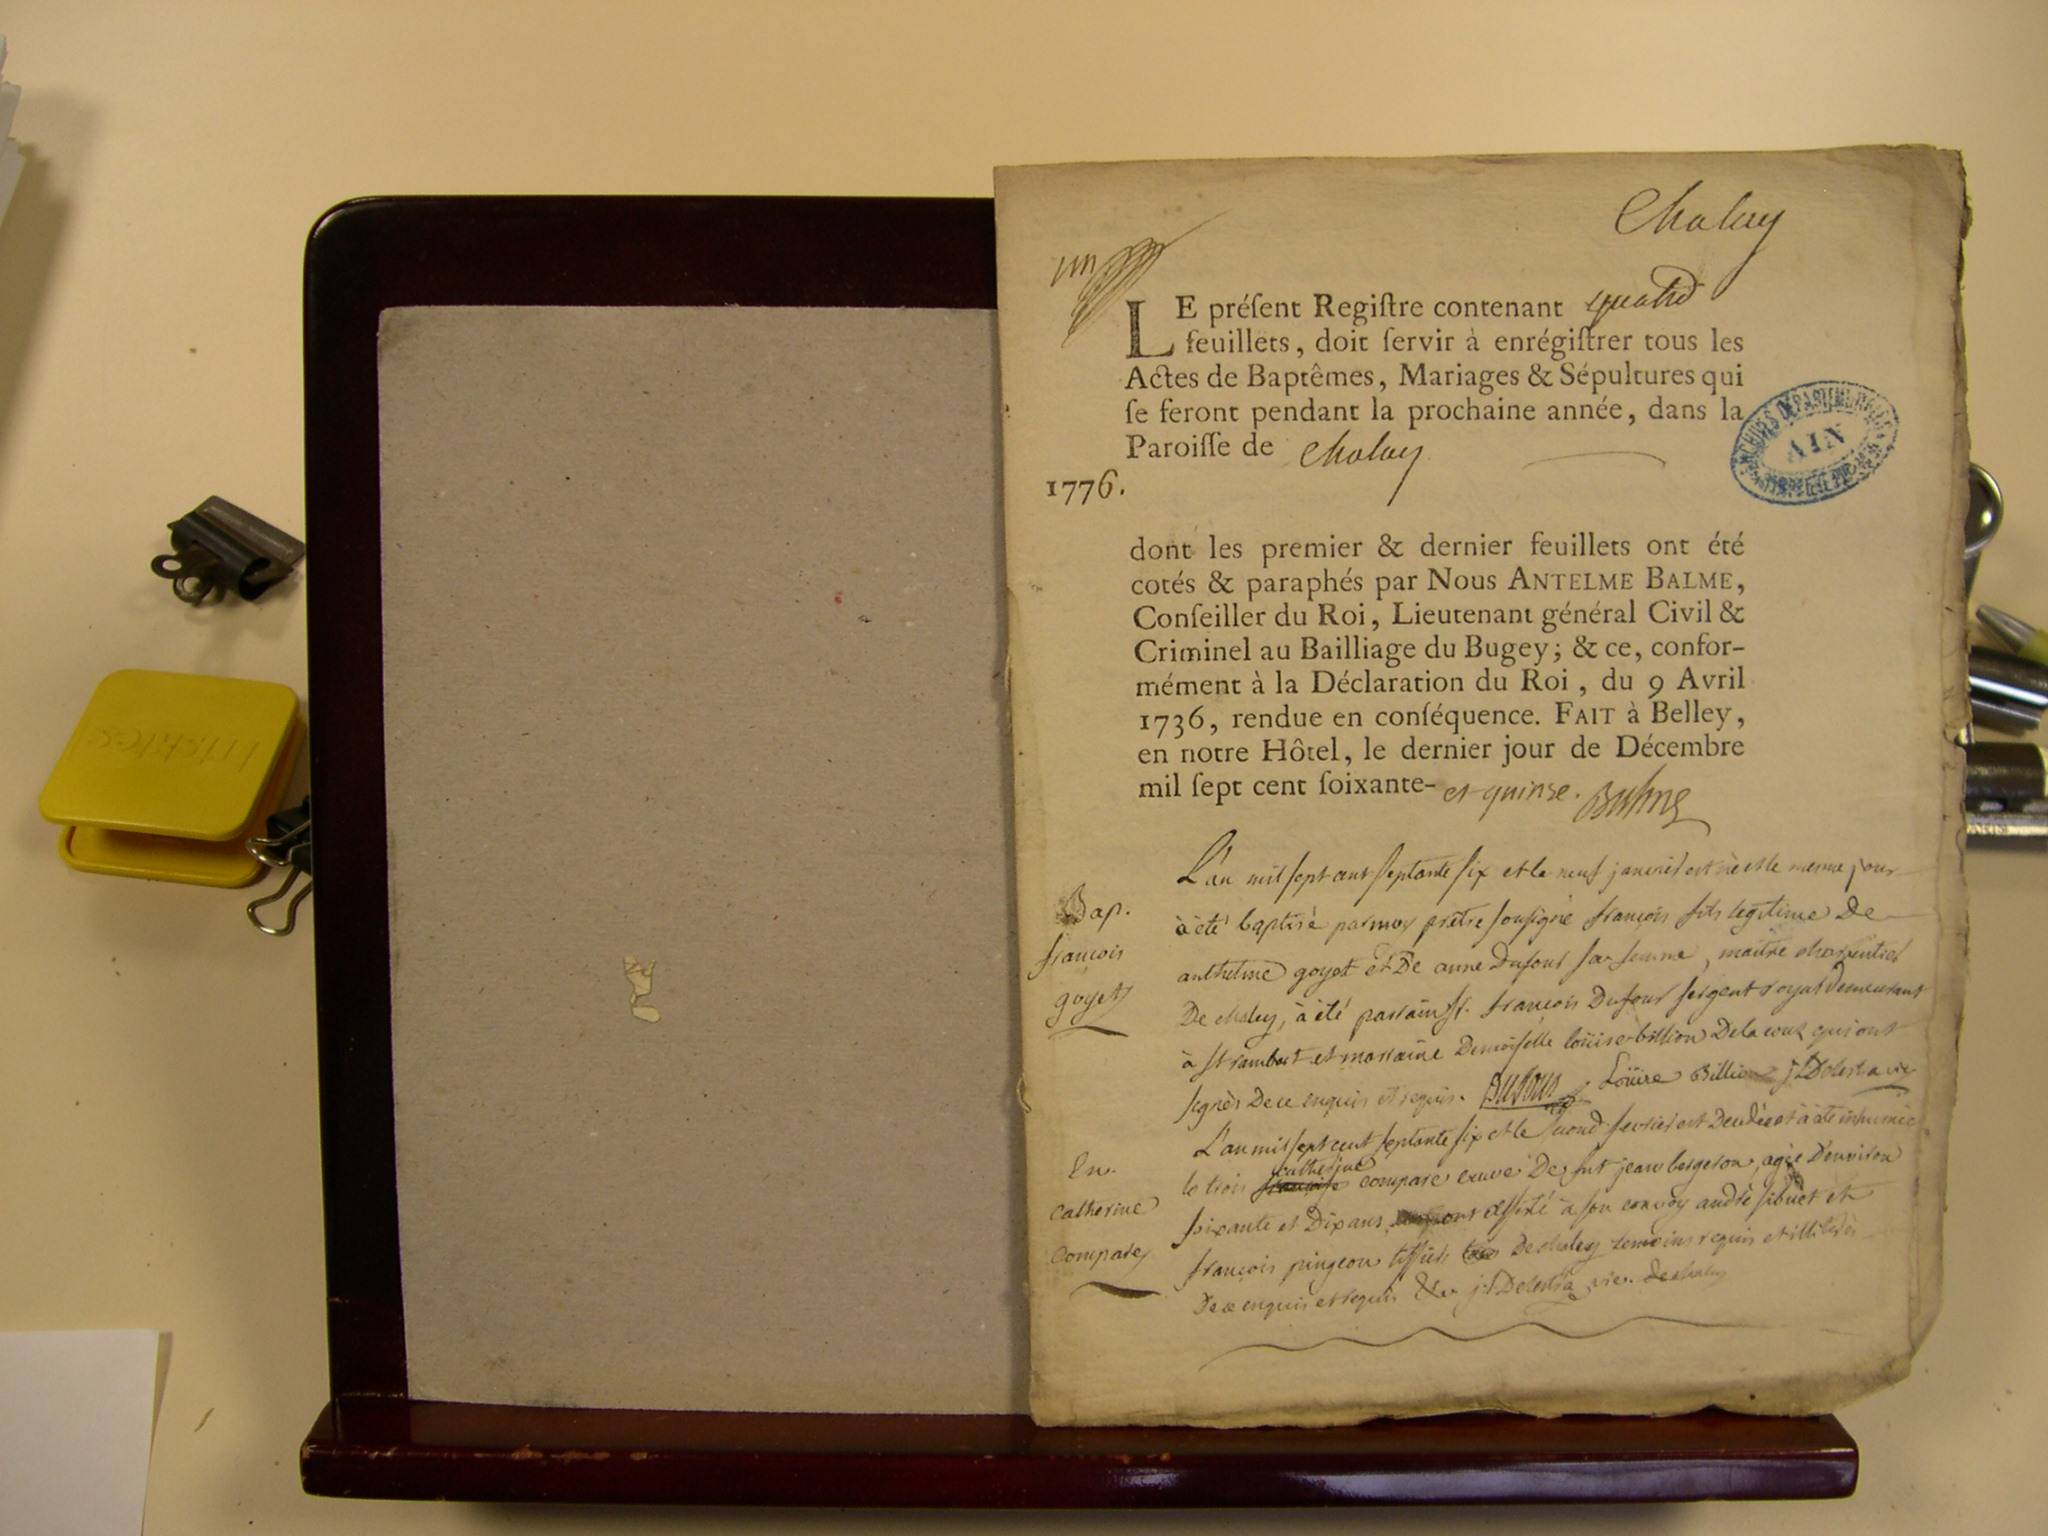 Chaley
un
LE préſent Regiſtre contenant quatre
feuillets, doit ſervir à enrégiſtrer tous les
Actes de Baptêmes, Mariages & Sépultures qui
ſe feront pendant la prochaine année, dans la
Paroiſſe de Chaley
1776.
ARCHIVES DÉPARTEMENTALES
AIN
dont les premier & dernier feuillets ont été
cotés & paraphés par Nous ANTELME BALME,
Conſeiller du Roi, Lieutenant général Civil &
Criminel au Bailliage du Bugey; & ce, confor-
mément à la Déclaration du Roi, du 9 Avril
1736, rendue en conſéquence. FAIT à Belley,
en notre Hôtel, le dernier jour de Décembre
mil ſept cent ſoixante- et quinse. Balme
L'an mil sept cent septante six et le neuf janvier est né et le meme jour
Bap.
à été baptisé par moy prêtre sousigné françois fils legitime De
françois
anthelme goyet et De anne Dufour sa femme, maitre charpentier
goyet
De chaley, à été parrain sr. françois Dufour sergent royal Demeurant
à st rambert et marraine Demoiselle louise billion Delacour qui ont
signés De ce enquis et requis. Dufour Louise Billion j. Delestra vic
L'an mil sept cent septante six et le second fevrier est Decedée et à été inhumée
En.
le trois catherine compare veuve De fut jean bergeron, agée D'environ
catherine
soixante et Dix ans, ont assisté à son convoy andré sibuet et
compare
françois pingeon De chaley temoins requis et illiterés
De ce enquis et requis j. Delestra vic. de chaley